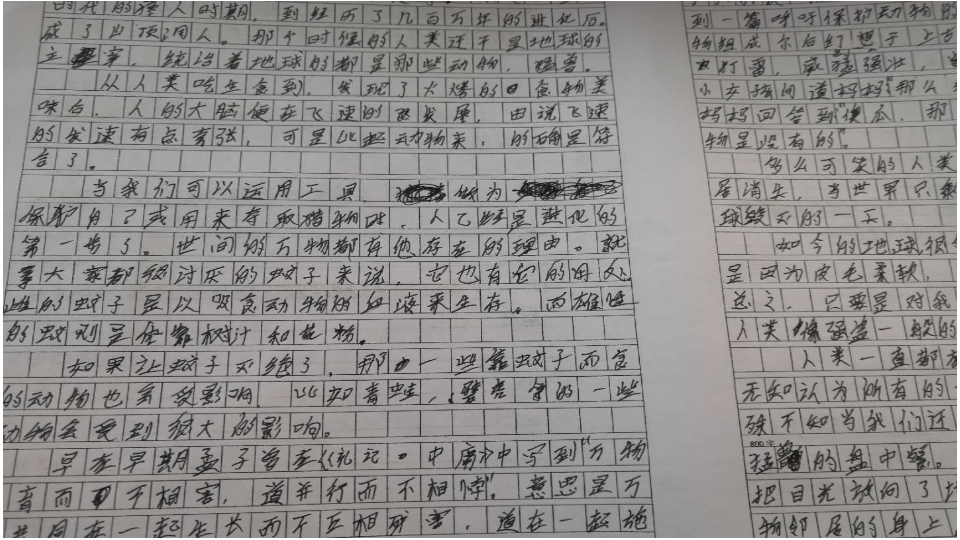 的我们猿人时期，到经历了几百万年的进化后。
成了山顶洞人。那个时候的人类还不是地球的
主宰，统治着地球的都是那些动物，猛兽。
从人类吃生食到，发现了火烤的食物美
味后，人的大脑便在飞速的发展，由说飞速
的发速有点夸张，可是比起动物来，的确是符
合了。
当我们可以运用工具，做为
保护自己或用来夺取猎物时，人已经是进化的
第一步了。世间的万物都有他存在的理由。就
拿大家都很讨厌的蚊子来说，它也有它的用处
雌的蚊子是以吸食动物的血液来生存。而雄性
的蚊则是依靠树汁和花粉。
如果让蚊子灭绝了，那一些靠蚊子而食
的动物也会受影响。比如青蛙，壁虎等的一些
动物会受到很大的影响。
早在早期孟子曾在《礼记。中庸》中写到“万物
育而不相害，道并行而不相悖”。意思是万
共同在一起生长而不互相残害，道在一起施
到一篇呼吁保护动物的
物组成尔后幻想于上古
打雷，威猛强壮，
小女孩问道妈妈“那么
妈妈回答到“傻瓜，那
物是没有的”
多么可笑的人类
尽消失，当世界只剩
球毁灭的一天。
如今的地球很
是因为皮毛柔软，
总之，只要是对我
人类像强盗一般的
人类一直都
无知认为所有的
殊不知当我们还
800字
猛兽的盘中餐。
把目光放向了
物邻居的身上